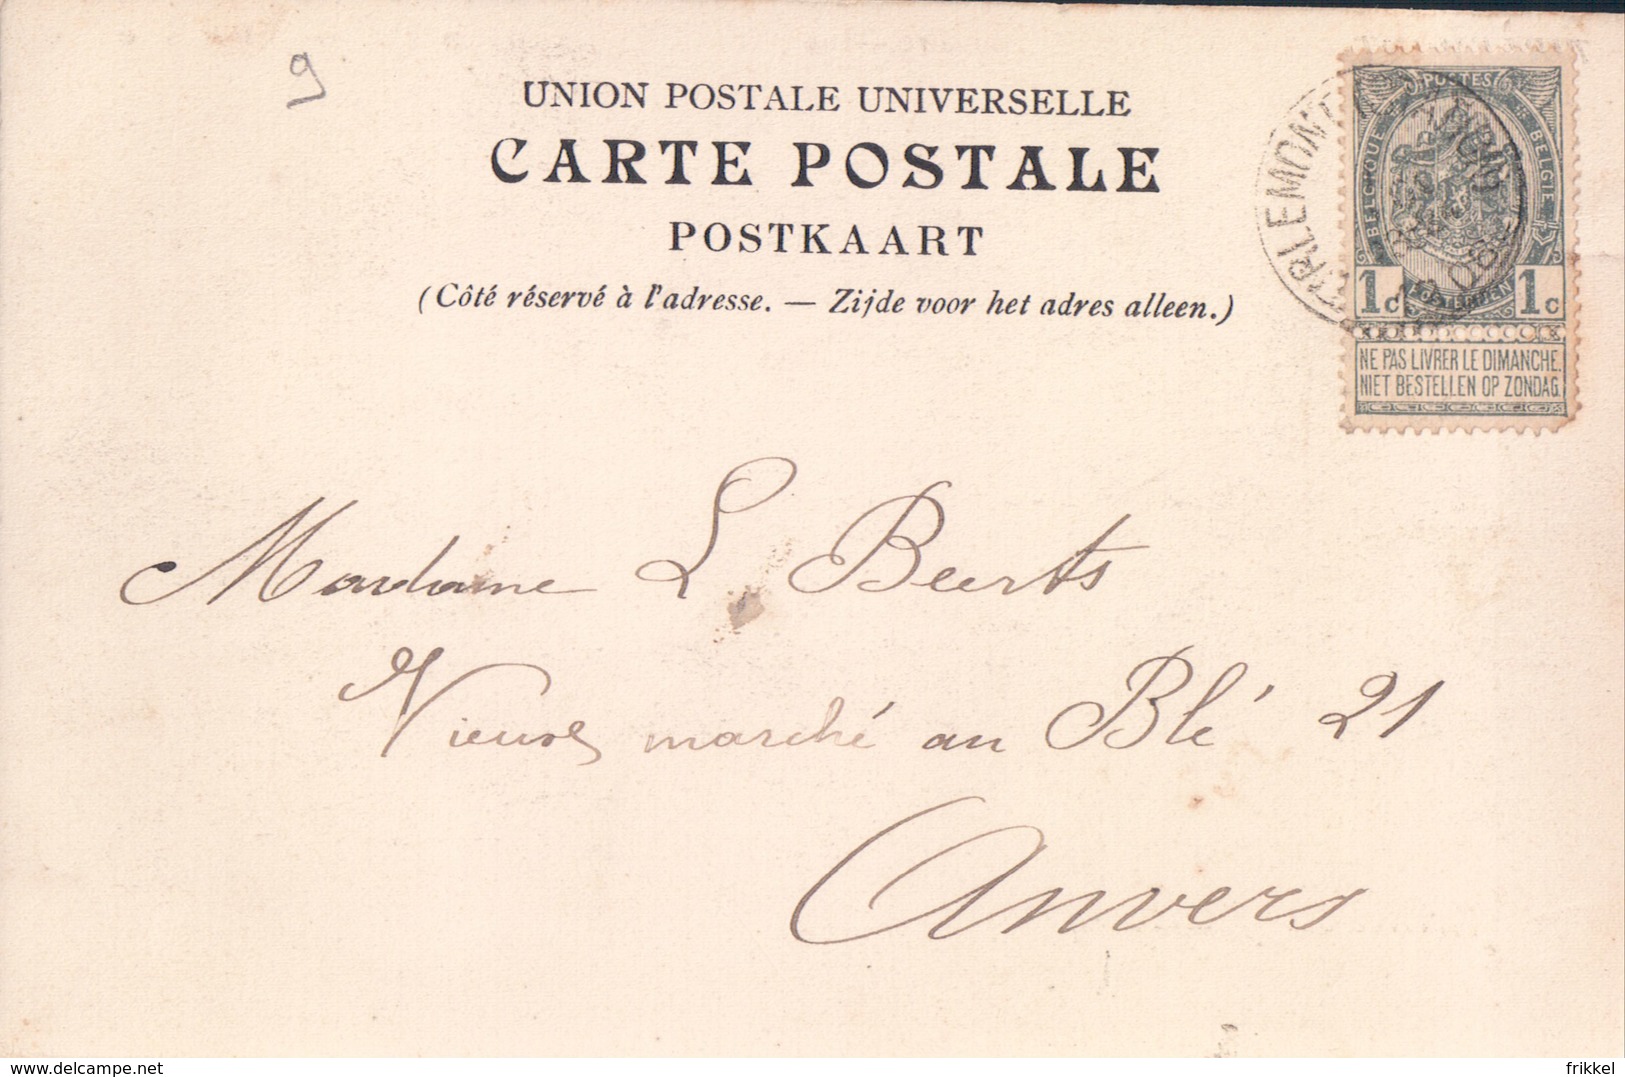 9
UNION POSTALE UNIVERSELLE
CARTE POSTALE
POSTKAART
(Côté réservé à l'adresse. — Zijde voor het adres alleen.)
TIRLEMONT
POSTES
BELGIQUE
BELGIË
1c
POSTERIJEN
1c
NE PAS LIVRER LE DIMANCHE.
NIET BESTELLEN OP ZONDAG.
Madame L Beerts
Vieux marché au Blé 21
Anvers
delcampe.net
frikkel